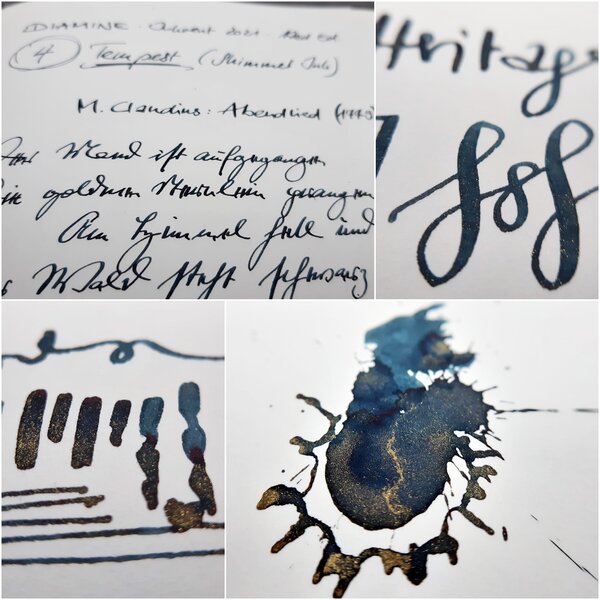 DIAMINE · Advent 2021 · Red Ed.
4 Tempest (Shimmer Ink)
M. Claudius: Abendlied (1779)
Der Mond ist aufgegangen
die goldnen Sternlein prangen
Am Himmel hell und
Wald steht schwarz
Heritage